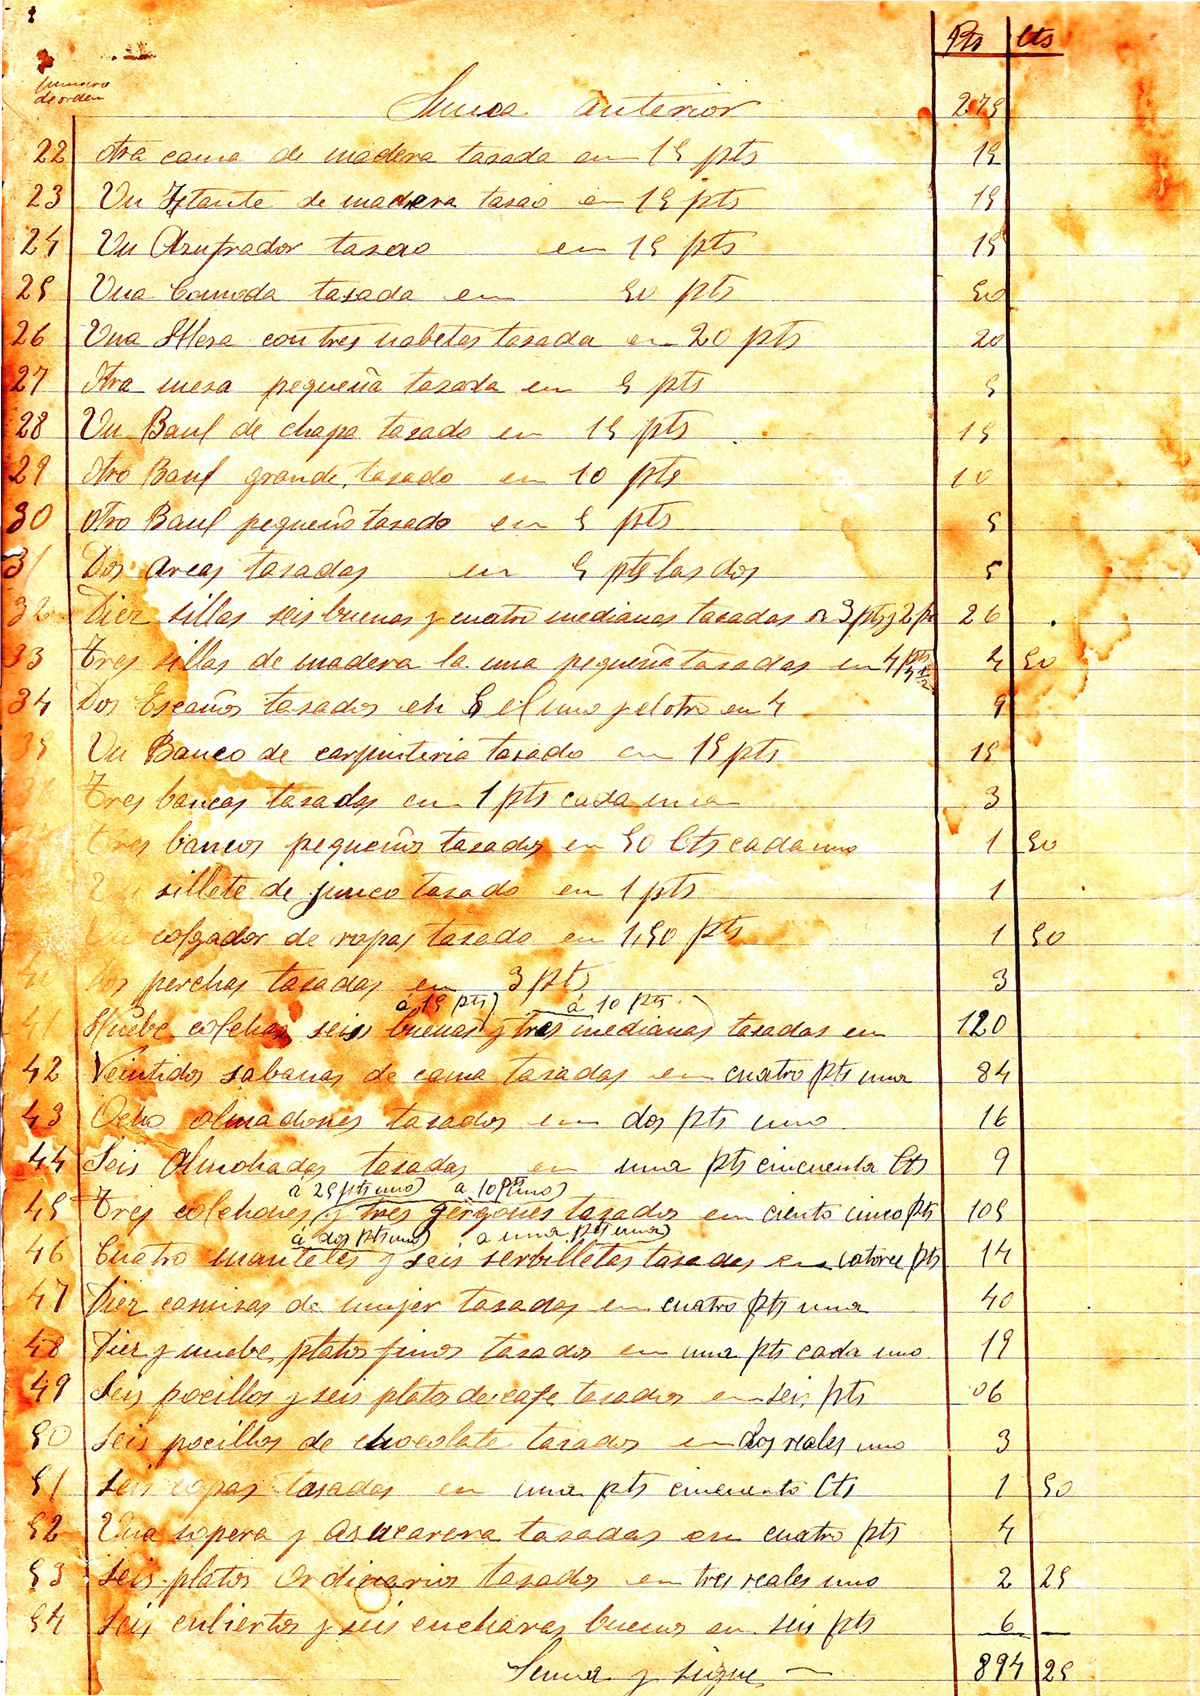 Pts Cts
numero
de orden
Suma anterior 275
22 Otra cama de madera tasada en 15 pts 15
23 Un Estante de madera tasao en 15 pts 15
24 Un Asufrador tasao en 15 pts 15
25 Una Comoda tasada en 50 pts 50
26 Una Mesa con tres nabetas tasada en 20 pts 20
27 Otra mesa pequeña tasada en 5 pts 5
28 Un Baul de chapa tasado en 15 pts 15
29 Otro Baul grande tasado en 10 pts 10
30 Otro Baul pequeño tasado en 5 pts 5
31 Dos arcas tasadas en 5 pts las dos 5
32 Diez sillas seis buenas y cuatro medianas tasadas a 3 pts y 2 pts 26
33 Tres sillas de madera la una pequeña tasadas en 4 pts 4 1/2 4 50
34 Dos Escaños tasados en 5 el uno y el otro en 4 9
35 Un Banco de carpinteria tasado en 15 pts 15
Tres bancas tasadas en 1 pts cada una 3
Tres bancos pequeños tasados en 50 Cts cada uno 1 50
Un sillete de junco tasado en 1 pts 1
Un colgador de ropas tasado en 1,50 pts 1 50
40 Dos perchas tasadas en 3 pts 3
á 15 pts) á 10 pts)
41 Nuebe colchas seis buenas y tres medianas tasadas en 120
42 Veintidos sabanas de cama tasadas en cuatro pts una 84
43 Ocho almadones tasados en dos pts uno 16
44 Seis Almohadas tasadas en una pts cincuenta Cts 9
á 25 pts uno) á 10 pts uno)
45 Tres colchones y tres gergones tasados en ciento cinco pts 105
á dos pts uno) á una pts una)
46 Cuatro manteles y seis serbilletas tasadas en catorce pts 14
47 Diez camisas de mujer tasadas en cuatro pts una 40
48 Diez y nuebe platos finos tasados en una pts cada uno 19
49 Seis pocillos y seis platos de cafe tasados en seis pts 06
50 Seis pocillos de chocolate tasados en dos reales uno 3
51 Seis copas tasadas en una pts cincuenta Cts 1 50
52 Una sopera y asucarera tasadas en cuatro pts 4
53 Seis platos Ordinarios tasados en tres reales uno 2 25
54 Seis cubiertos y seis cucharas buenos en seis pts 6
Suma y sigue 894 25